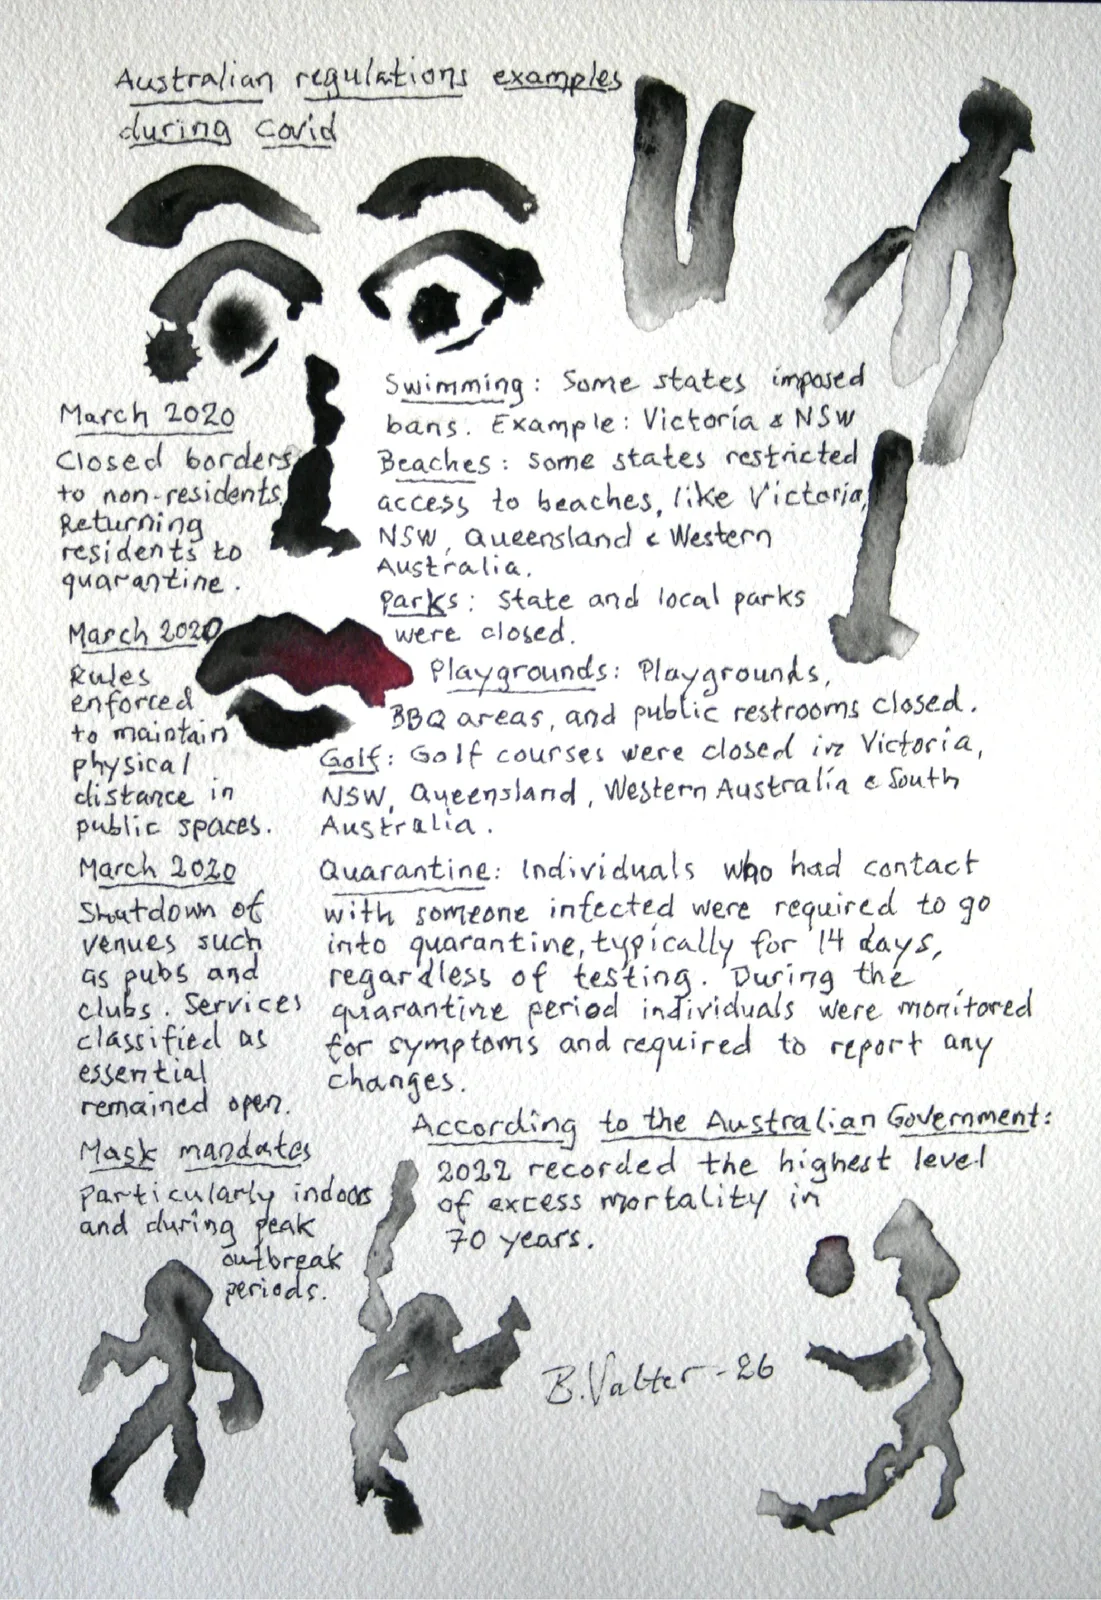 Australian regulations examples
during Covid
March 2020
Closed borders
to non-residents.
Returning
residents to
quarantine.
March 2020
Rules
enforced
to maintain
physical
distance in
public spaces.
March 2020
Shutdown of
venues such
as pubs and
clubs. Services
classified as
essential
remained open.
Mask mandates
particularly indoors
and during peak
outbreak
periods.
Swimming: Some states imposed
bans. Example: Victoria & NSW
Beaches: Some states restricted
access to beaches, like Victoria,
NSW, Queensland & Western
Australia.
Parks: State and local parks
were closed.
Playgrounds: Playgrounds,
BBQ areas, and public restrooms closed.
Golf: Golf courses were closed in Victoria,
NSW, Queensland, Western Australia & South
Australia.
Quarantine: Individuals who had contact
with someone infected were required to go
into quarantine, typically for 14 days,
regardless of testing. During the
quarantine period individuals were monitored
for symptoms and required to report any
changes.
According to the Australian Government:
2022 recorded the highest level
of excess mortality in
70 years.
B. Valter - 26